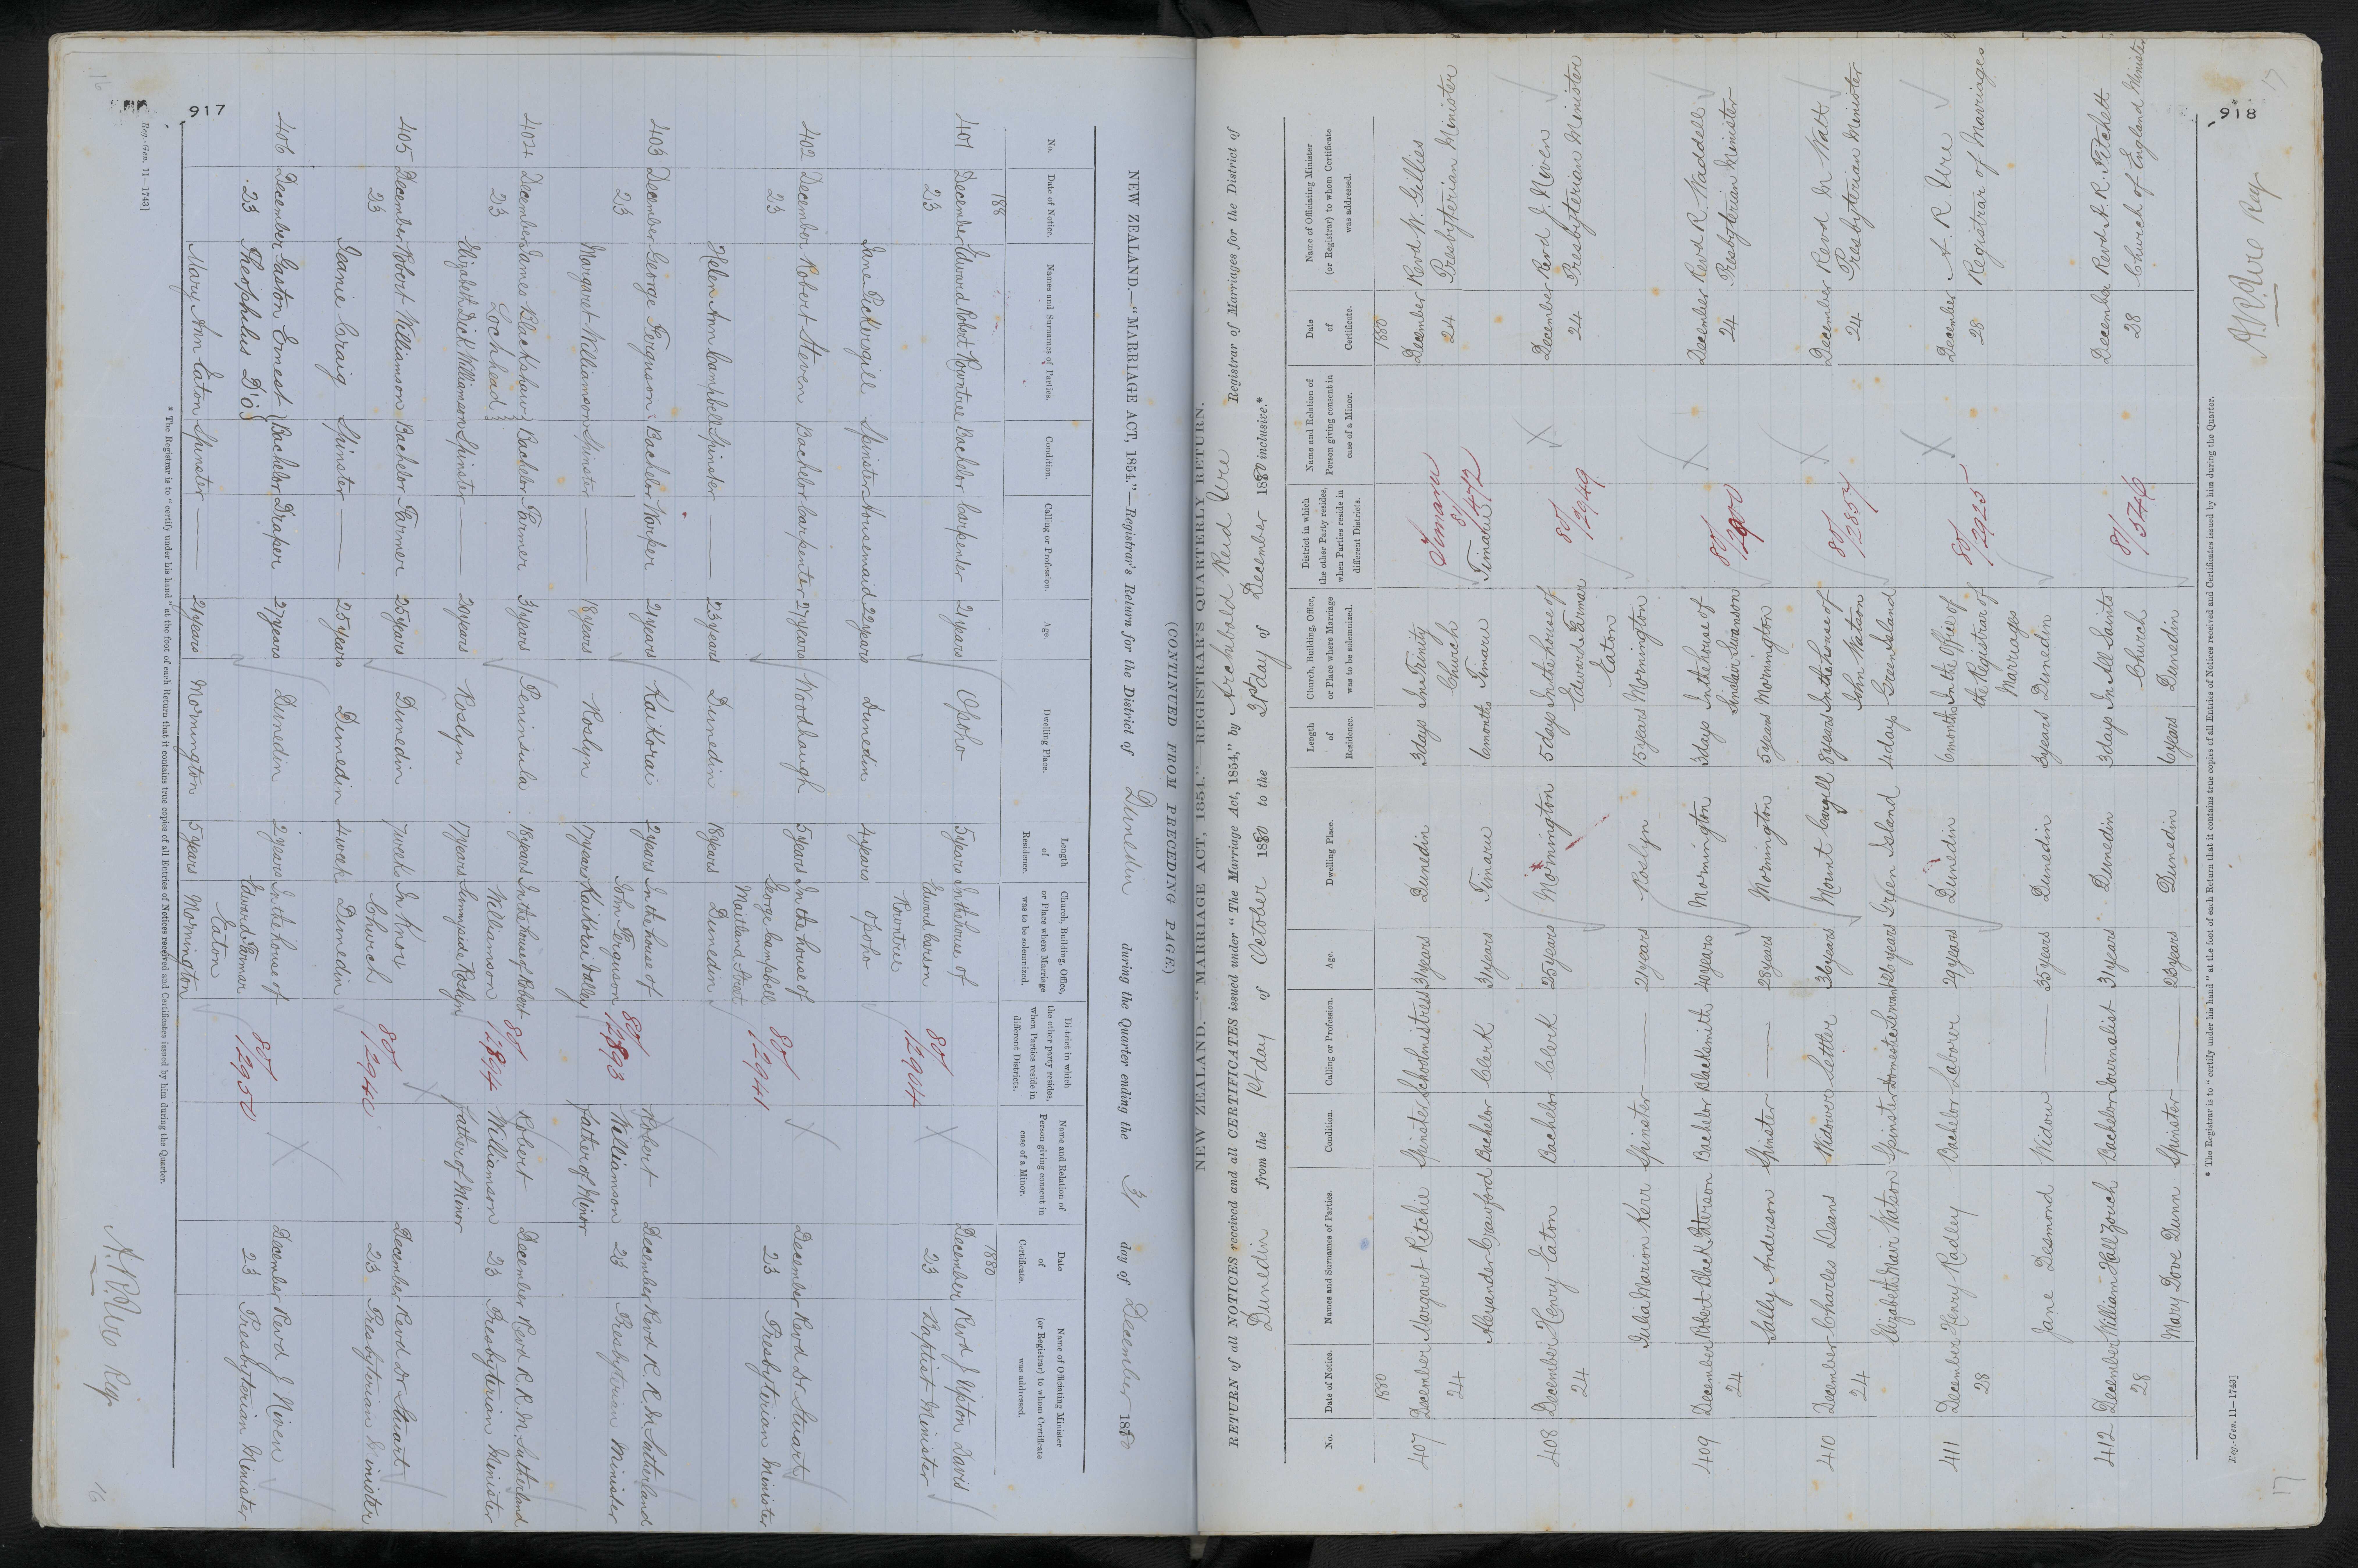 917
16
NEW ZEALAND.—"MARRIAGE ACT, 1854."—Registrar's Return for the District of Dunedin during the Quarter ending the 31 day of December 1880
(CONTINUED FROM PRECEDING PAGE)
No. Date of Notice. Names and Surnames of Parties. Condition. Calling or Profession. Age. Dwelling Place. Length of Residence. Church, Building, Office, or Place where Marriage was to be solemnized. District in which the other party resides, when Parties reside in different Districts. Name and Relation of Person giving consent in case of a Minor. Date of Certificate. Name of Officiating Minister (or Registrar) to whom Certificate was addressed.
188 1880
401 December Edward Robert Rowntree Bachelor Carpender 21 years Opoho 5 years In the house of 80/2904 December Revd J. Upton Davis
23 Edward Carson Rowntree 23 Baptist Minister
Jane Pickersgill Spinster Housemaid 22 years Dunedin 4 years Opoho
402 December Robert Steven Bachelor Carpenter 27 years Woodhaugh 5 years In the house of 80/2941 December Revd Dr Stuart
23 George Campbell Maitland Street 23 Presbyterian Minister
Helen Ann Campbell Spinster — 23 years Dunedin 18 years Dunedin
403 December George Ferguson Bachelor 21 years Kaikorai 2 years In the house of 80/2893 Robert December Revd R. R. M. Sutherland
23 John Ferguson Williamson 23 Presbyterian Minister
Margaret Williamson Spinster — 18 years Roslyn 17 years Kaikorai Valley father of Minor
404 December James Blackshaw Bachelor Farmer 31 years Peninsula 18 years In the house of Robert 80/2894 Robert December Revd R. R. M. Sutherland
23 Lochhead Williamson Williamson 23 Presbyterian Minister
Elizabeth Dick Williamson Spinster — 20 years Roslyn 17 years Sunnyside Roslyn father of Minor
405 December Robert Williamson Bachelor Farmer 25 years Dunedin 7 weeks In Knox December Revd Dr Stuart
23 Church 23 Presbyterian Minister
Jeanie Craig Spinster — 25 years Dunedin 4 week Dunedin
406 December Gaston Ernest Bachelor Draper 27 years Dunedin 2 years In the house of 80/2950 December Revd J Niven
23 Theophilus Do Edward Farmar Eaton 23 Presbyterian Minister
Mary Ann Eaton Spinster — 21 years Mornington 5 years Mornington
* The Registrar is to "certify under his hand" at the foot of each Return that it contains true copies of all Entries of Notices received and Certificates issued by him during the Quarter.
Reg.-Gen. 11—1743]
A. R. Ure Reg
16
918
17
NEW ZEALAND.—"MARRIAGE ACT, 1854." REGISTRAR'S QUARTERLY RETURN.
RETURN of all NOTICES received and all CERTIFICATES issued under "The Marriage Act, 1854," by Archibald Reid Ure Registrar of Marriages for the District of
Dunedin from the 1st day of October 1880 to the 31st day of December 1880 inclusive.*
No. Date of Notice. Names and Surnames of Parties. Condition. Calling or Profession. Age. Dwelling Place. Length of Residence. Church, Building, Office, or Place where Marriage was to be solemnized. District in which the other Party resides, when Parties reside in different Districts. Name and Relation of Person giving consent in case of a Minor. Date of Certificate. Name of Officiating Minister (or Registrar) to whom Certificate was addressed.
1880 1880
407 December Margaret Ritchie Spinster Schoolmistress 31 years Dunedin 3 days In Trinity Timaru December Revd W. Gillies
24 Church 81/472 24 Presbyterian Minister
Alexander Crawford Bachelor Clerk 31 years Timaru 6 months Timaru Timaru
408 December Henry Eaton Bachelor Clerk 25 years Mornington 5 days In the house of 80/2949 December Revd J. Niven
24 Edward Farmar Eaton 24 Presbyterian Minister
Julia Marion Kerr Spinster — 21 years Roslyn 15 years Mornington
409 December Robert Black Paterson Bachelor Blacksmith 40 years Mornington 3 days In the house of December Revd R. Waddell
24 Sinclair Swanson 24 Presbyterian Minister
Sally Anderson Spinster — 28 years Mornington 5 years Mornington
410 December Charles Deans Widower Settler 36 years Mount Cargill 8 years In the house of 80/2857 December Revd M Watt
24 John Watson 24 Presbyterian Minister
Elizabeth Mair Watson Spinster Domestic Servant 26 years Green Island 4 days Green Island
411 December Henry Radley Bachelor Laborer 29 years Dunedin 6 months In the Office of 80/2925 December A. R. Ure
28 the Registrar of Marriages 28 Registrar of Marriages
Jane Desmond Widow — 35 years Dunedin 3 years Dunedin
412 December William Hall Zouch Bachelor Journalist 31 years Dunedin 3 days In All Saints 81/546 December Revd A. R. Fitchett
28 Church 28 Church of England Minister
Mary Dove Dunn Spinster — 23 years Dunedin 6 years Dunedin
* The Registrar is to "certify under his hand" at the foot of each Return that it contains true copies of all Entries of Notices received and Certificates issued by him during the Quarter.
Reg.-Gen. 11—1743]
A. R. Ure Reg
17